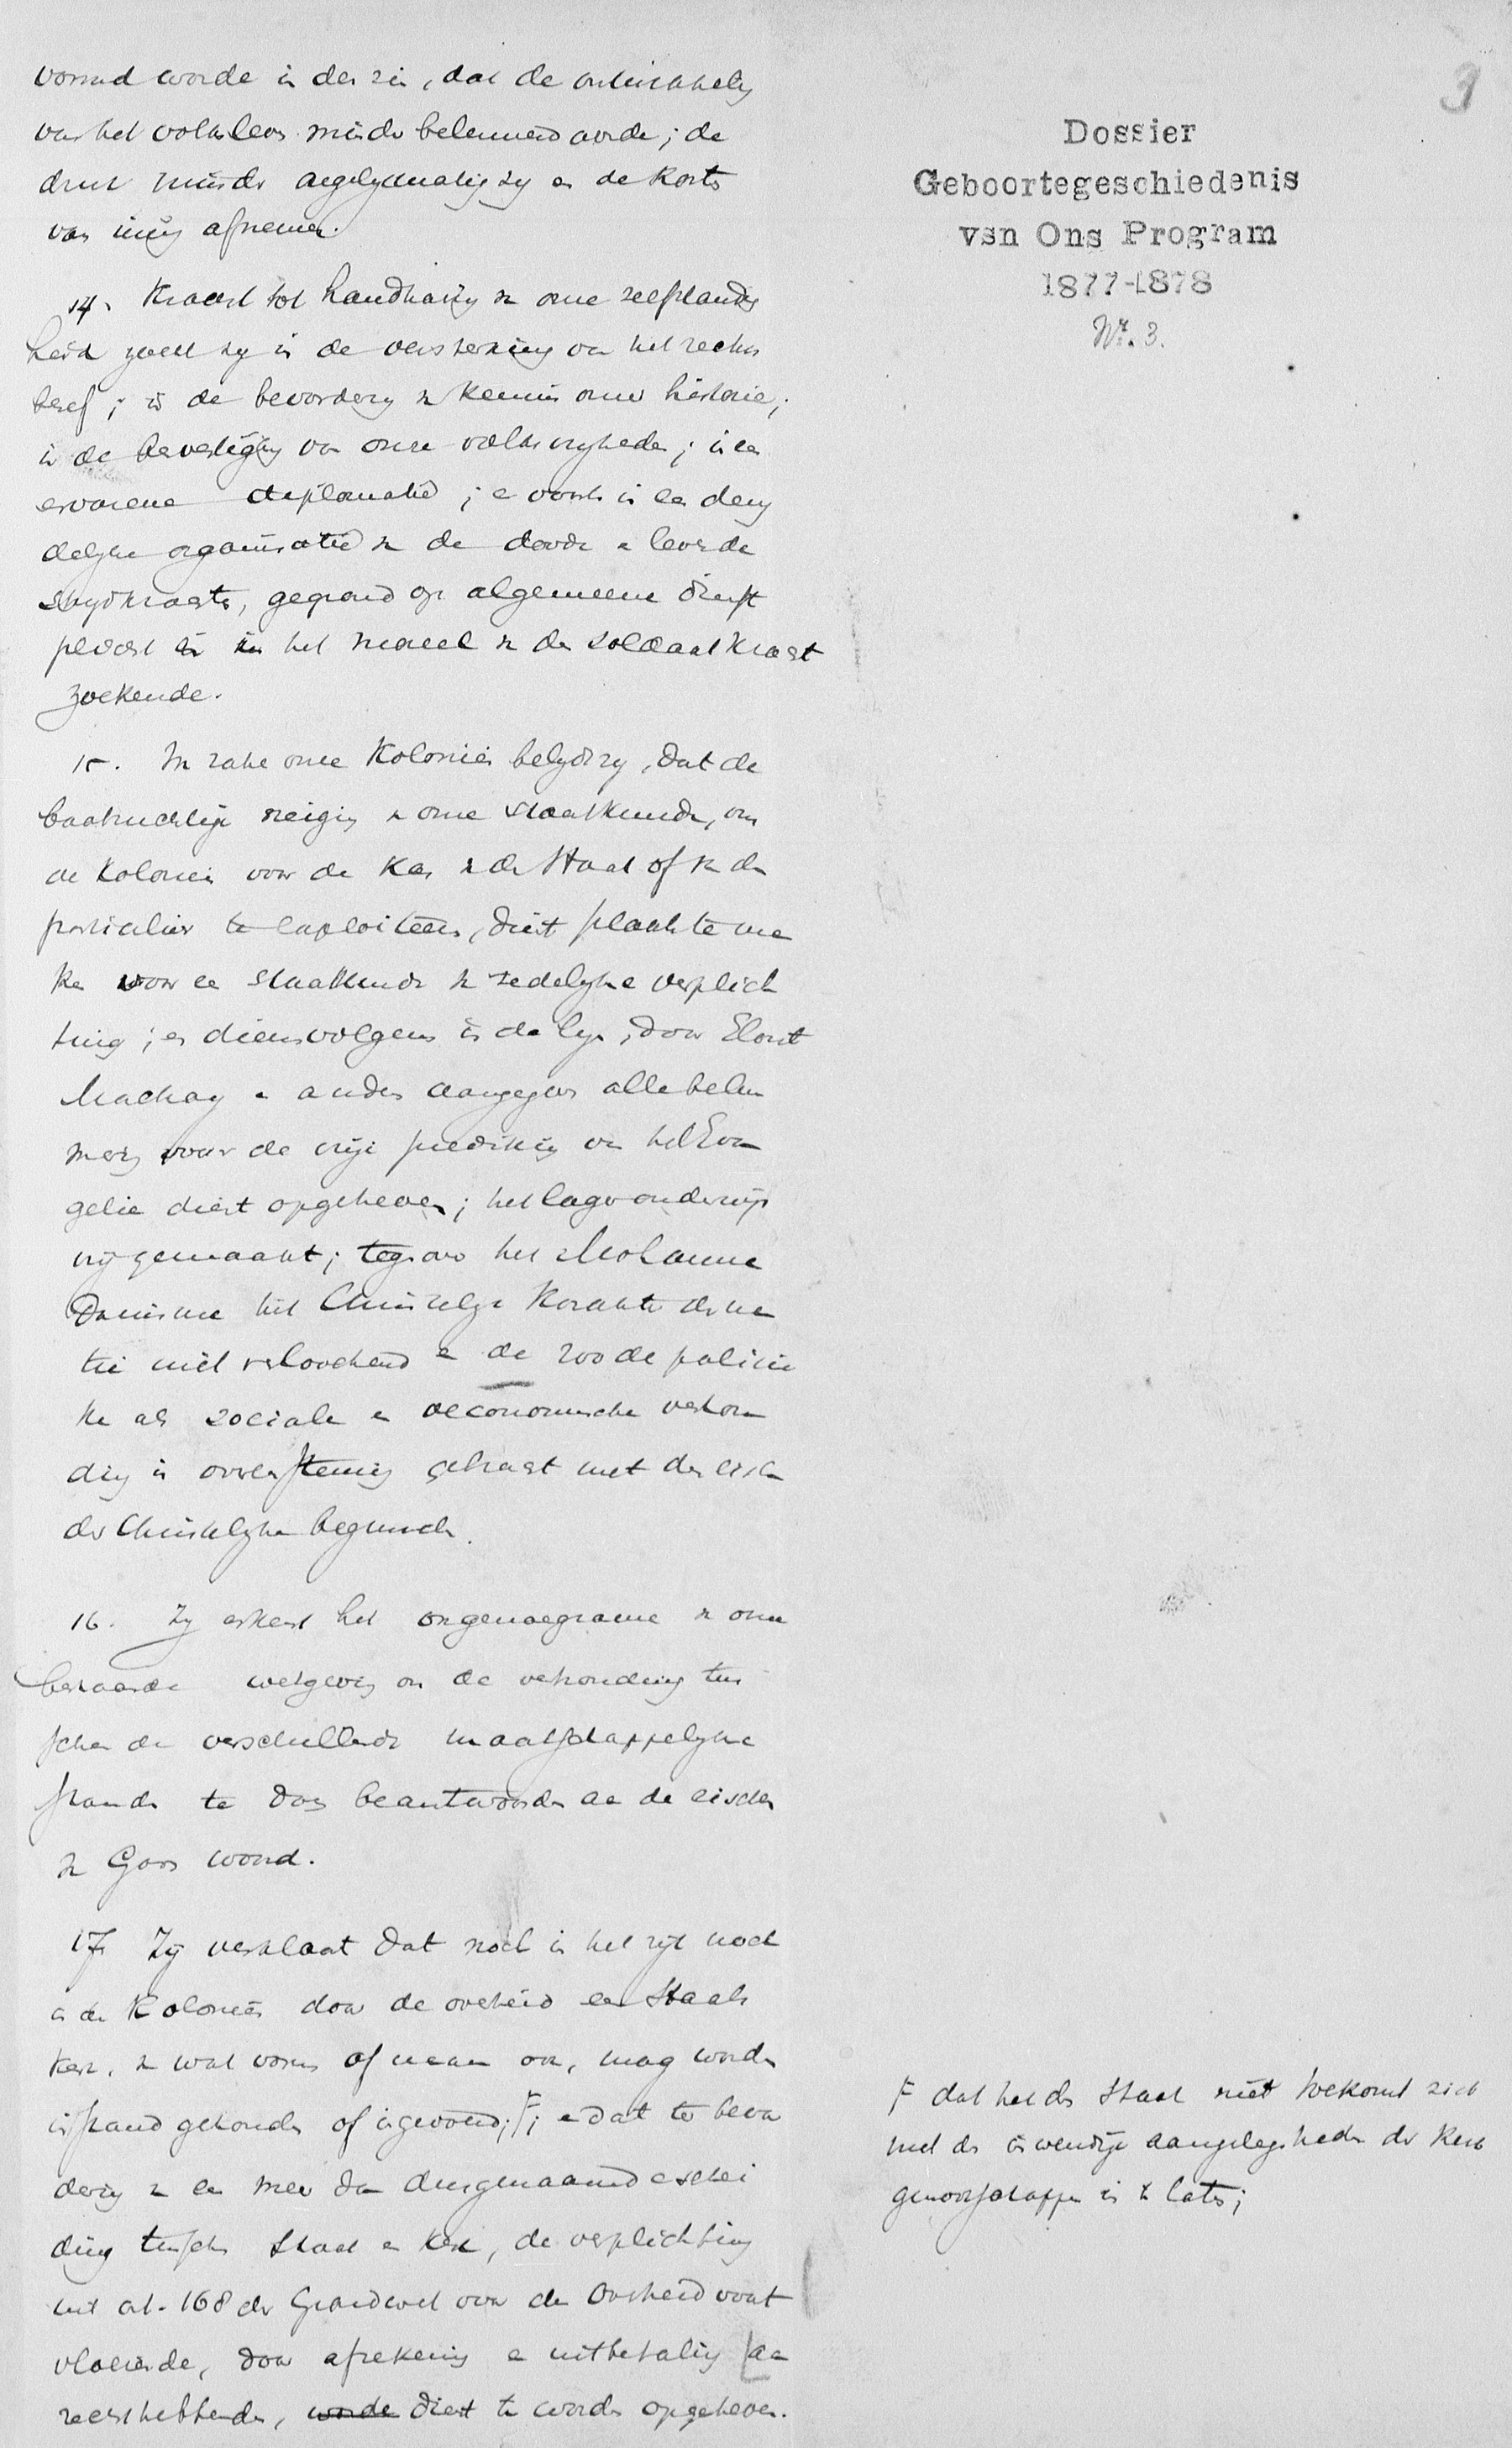 vormd worde in den zin, dat de ontwikkeling
van het volksleven minder belemmerd worde; de
druk minder ongelijkmatig zij en de kosten
van inning afnemen.
14. Kracht tot handhaving van onze zelfstandig
heid zoekt zij in de versterking van het rechts
besef; in de bevordering van kennis onzer historie;
in de bevestiging van onze volksvrijheden; in een
ervarene diplomatie; en voorts in een deug
delijke organisatie van de doode en levende
strijdkrachten, gegrond op algemeene dienst
plicht en in het moreel van den soldaat kracht
zoekende.
15. In zake onze Koloniën belijdt zij, dat de
baatzuchtige neiging van onze staatkunde, om
de Koloniën voor de kas van den Staat of van den
particulier te exploiteeren, dient plaats te ma
ken voor een staatkunde van zedelijke verplich
ting; en dienvolgens in de lijn, door Elout
Mackay en anderen aangegeven alle belem
mering voor de vrije prediking van het Evan
gelie dient opgeheven; het lager onderwijs
vrij gemaakt; tegenover het Mohamme
danisme het Christelijk Karakter der na
tie niet verloochend en de zoo de politie
ke als sociale en oeconomische verhou
ding in overeenstemming gebracht met den eisch
der Christelijke beginselen.
16. Zij erkent het ongenoegzame van onze
bestaande wetgeving om de verhouding tus
schen de verschillende maatschappelijke
standen te doen beantwoorden aan de eischen
van Gods woord.
17. Zij verklaart dat noch in het rijk noch
in de Koloniën door de overheid een Staats
kerk, van wat vorm of naam ook, mag worden
in stand gehouden of ingevoerd; F; en dat ter bevor
dering van een meer dan dusgenaamde schei
ding tusschen Staat en Kerk, de verplichting
uit art. 168 der Grondwet voor de Overheid voort
vloeiende, door afrekening en uitbetaling aan
rechthebbenden, worde dient te worden opgeheven.
3
Dossier
Geboortegeschiedenis
vsn Ons Program
1877-1878
Nr. 3.
F dat het den Staat niet toekomt zich
met de inwendige aangelegenheden der Kerk
genootschappen in te laten;